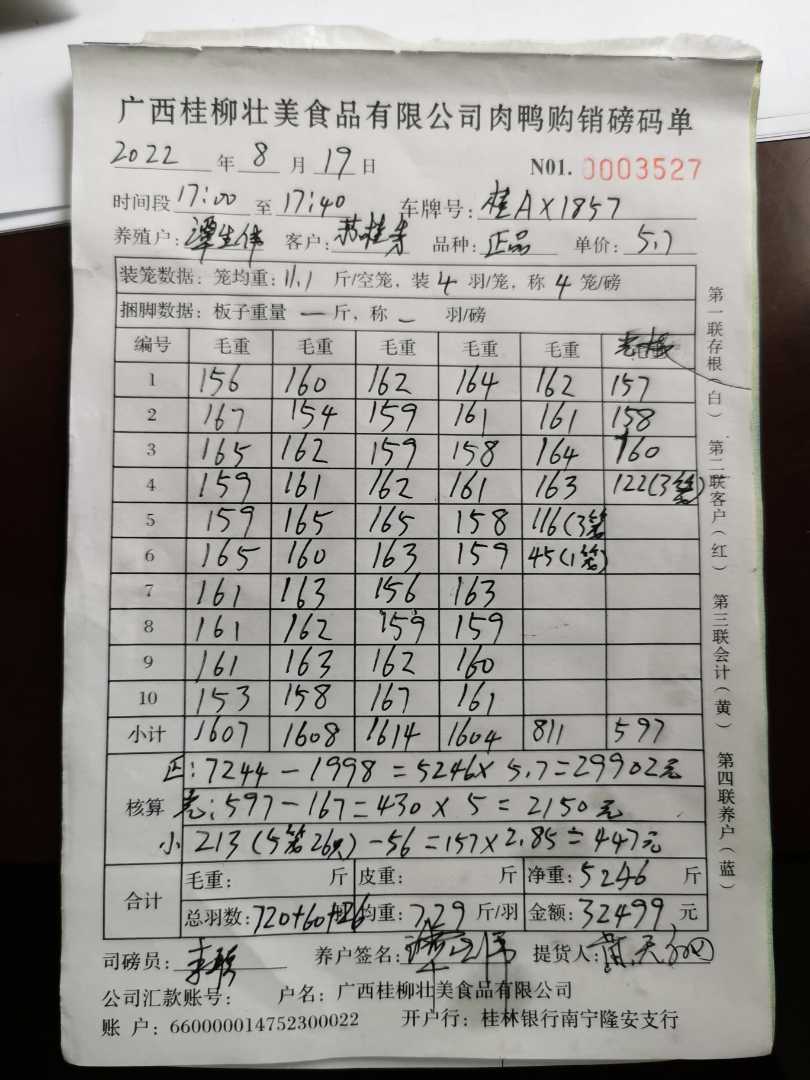 广西桂柳壮美食品有限公司肉鸭购销磅码单
2022 年 8 月 19 日 N01. 0003527
时间段 17:00 至 17:40 车牌号: 桂AX1857
养殖户: 谭生伟 客户: 苏桂 品种: 正品 单价: 5.7
装笼数据: 笼均重: 11.1 斤/空笼, 装 4 羽/笼, 称 4 笼/磅
捆脚数据: 板子重量 一 斤, 称 - 羽/磅
编号 毛重 毛重 毛重 毛重 毛重
1 156 160 162 164 162 157
2 167 154 159 161 161 158
3 165 162 159 158 164 160
4 159 161 162 161 163 122(3笼)
5 159 165 165 158 116(3笼
6 165 160 163 159 45(1笼)
7 161 163 156 163
8 161 162 159 159
9 161 163 162 160
10 153 158 167 161
小计 1607 1608 1614 1604 811 597
正: 7244-1998=5246×5.7=29902元
核算 : 597-167=430×5=2150元
小 213(5笼26只)-56=157×2.85=447元
合计 毛重: 斤 皮重: 斤 净重: 5246 斤
总羽数: 720+60+26 均重: 7.29 斤/羽 金额: 32499 元
司磅员: 养户签名: 提货人:
公司汇款账号: 户名: 广西桂柳壮美食品有限公司
账 户: 660000014752300022 开户行: 桂林银行南宁隆安支行
第一联存根(白) 第二联客户(红) 第三联会计(黄) 第四联养户(蓝)